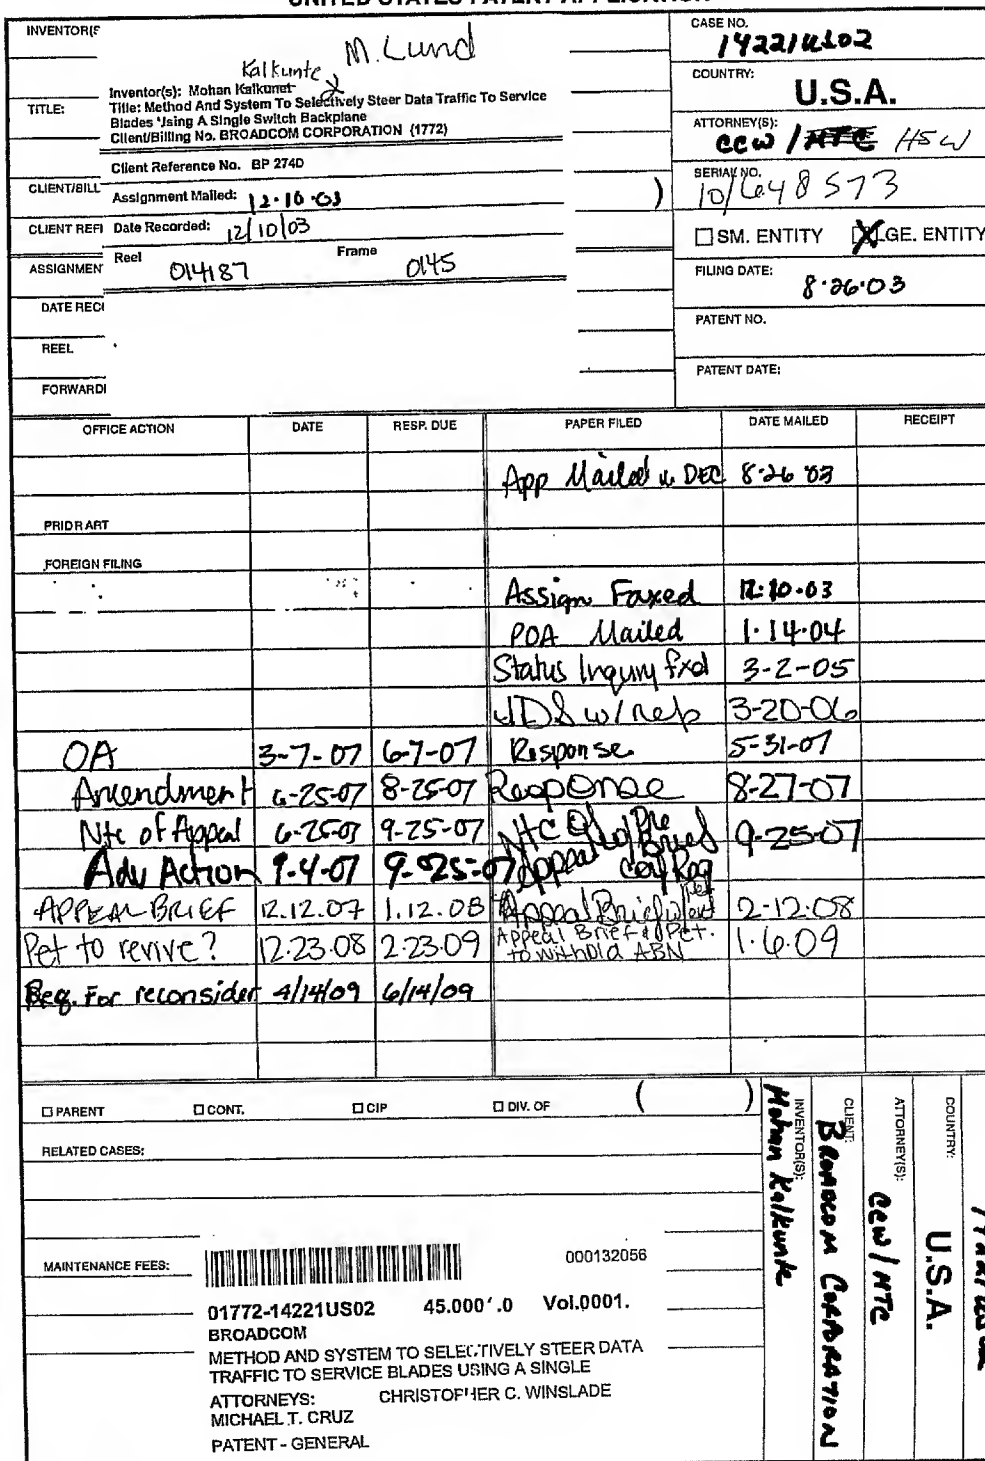 UNITED STATES PATENT APPLICATION
INVENTOR(S
M. Lund
Kalkunte
Inventor(s): Mohan Kalkunet
TITLE:
Title: Method And System To Selectively Steer Data Traffic To Service
Blades Using A Single Switch Backplane
Client/Billing No. BROADCOM CORPORATION (1772)
Client Reference No. BP 2740
CLIENT/BILL
Assignment Mailed: 12-10-03
CLIENT REFI
Date Recorded: 12/10/03
ASSIGNMEN
Reel 014187 Frame 0145
DATE RECI
REEL
FORWARDI
CASE NO.
14221US02
COUNTRY:
U.S.A.
ATTORNEY(S):
CCW / MTC HSW
SERIAL NO.
10/648573
SM. ENTITY LGE. ENTITY
FILING DATE:
8-26-03
PATENT NO.
PATENT DATE:
OFFICE ACTION DATE RESP. DUE PAPER FILED DATE MAILED RECEIPT
App Mailed w DEC 8-26 03
PRIOR ART
FOREIGN FILING
Assign Faxed 12-10-03
POA Mailed 1-14-04
Status Inquiry fxd 3-2-05
IDS w/ref 3-20-06
OA 3-7-07 6-7-07 Response 5-31-07
Amendment 6-25-07 8-25-07 Response 8-27-07
Ntc of Appeal 6-25-07 9-25-07 Ntc Of Appeal Pre Brief Conf Req 9-25-07
Adv Action 9-4-07 9-25-07
APPEAL BRIEF 12.12.07 1.12.08 Appeal Brief 2-12-08
Pet to revive? 12.23.08 2.23.09 Appeal Brief & Pet. to withhold ABN 1.6.09
Req. For reconsider 4/14/09 6/14/09
PARENT CONT. CIP DIV. OF ( )
RELATED CASES:
MAINTENANCE FEES:
000132056
01772-14221US02 45.000'.0 Vol.0001.
BROADCOM
METHOD AND SYSTEM TO SELECTIVELY STEER DATA
TRAFFIC TO SERVICE BLADES USING A SINGLE
ATTORNEYS: CHRISTOPHER C. WINSLADE
MICHAEL T. CRUZ
PATENT - GENERAL
INVENTOR(S):
Mohan Kalkunte
CLIENT:
BROADCOM CORPORATION
ATTORNEY(S):
CCW / MTC
COUNTRY:
U.S.A.